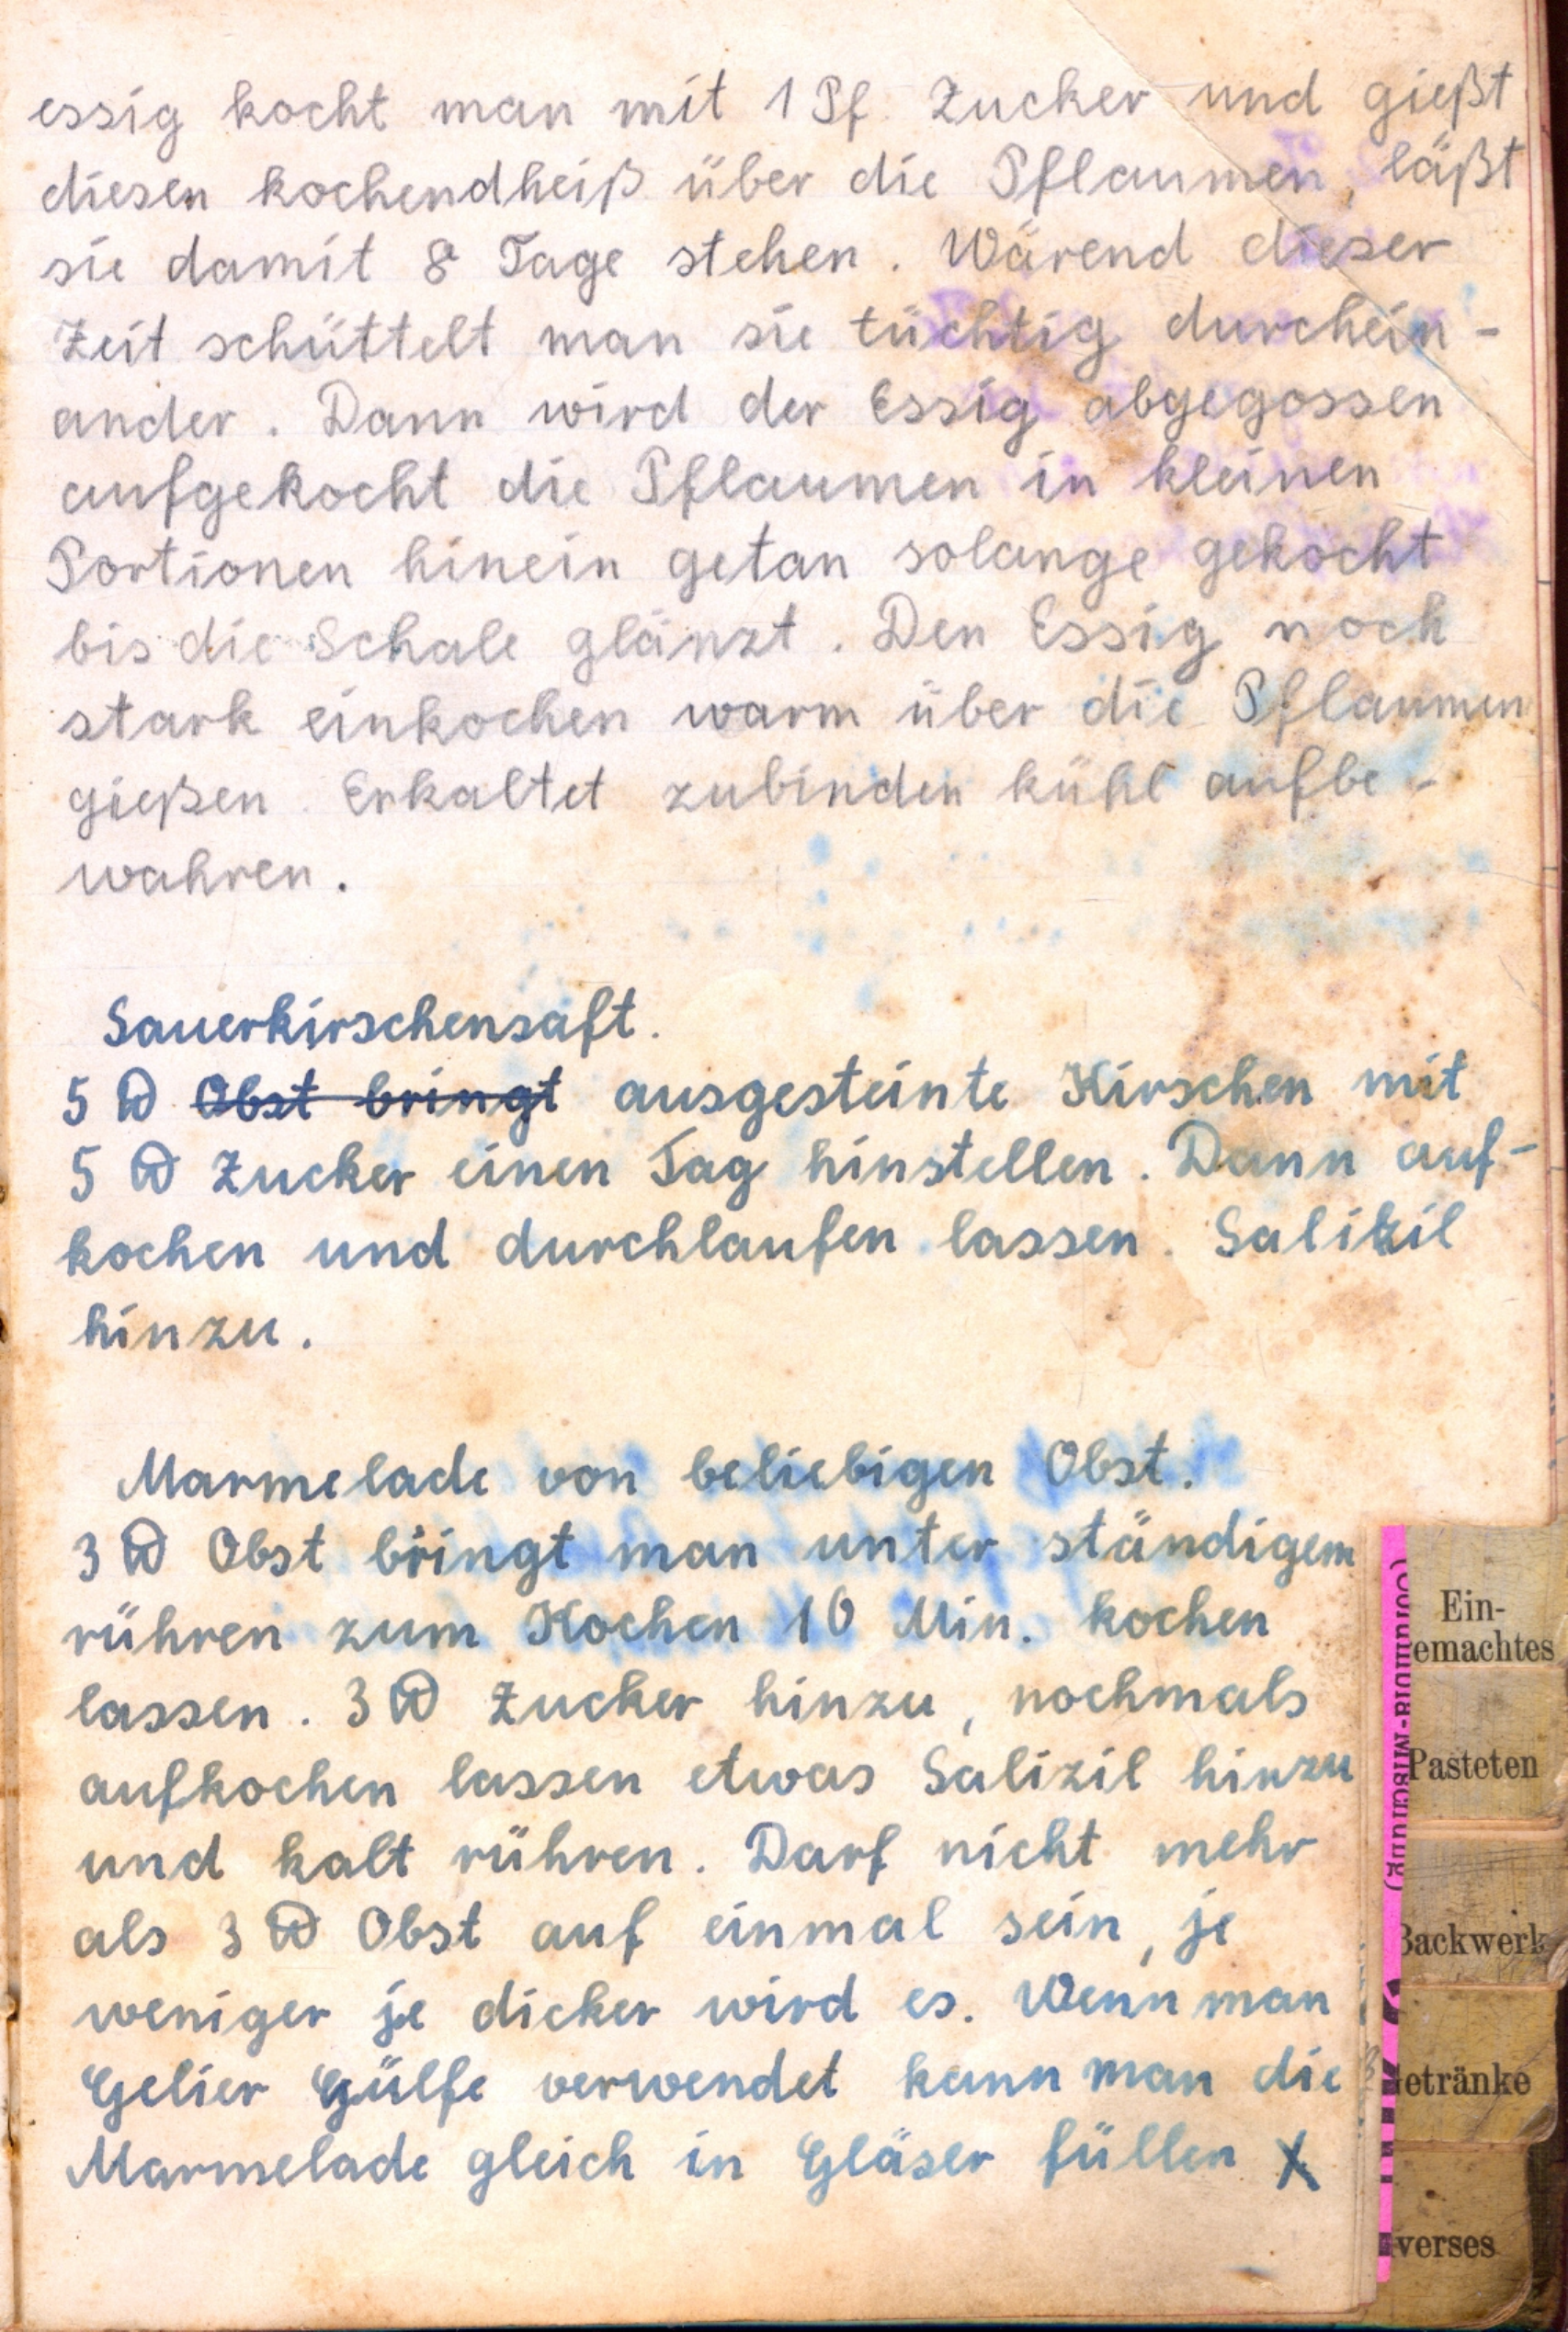 essig kocht man mit 1 Pf. Zucker und gießt
diesen kochendheiß über die Pflaumen, läßt
sie damit 8 Tage stehen. Wärend dieser
Zeit schüttelt man sie tüchtig durchein-
ander. Dann wird der Essig abgegossen
aufgekocht die Pflaumen in kleinen
Portionen hinein getan solange gekocht
bis die Schale glänzt. Den Essig noch
stark einkochen warm über die Pflaumen
gießen. Erkaltet zubinden kühl aufbe-
wahren.
Sauerkirschensaft.
5 ℔ Obst bringt ausgesteinte Kirschen mit
5 ℔ Zucker einen Tag hinstellen. Dann auf-
kochen und durchlaufen lassen. Salizil
hinzu.
Marmelade von beliebigen Obst.
3 ℔ Obst bringt man unter ständigem
rühren zum Kochen 10 Min. kochen
lassen. 3 ℔ Zucker hinzu, nochmals
aufkochen lassen etwas Salizil hinzu
und kalt rühren. Darf nicht mehr
als 3 ℔ Obst auf einmal sein, je
weniger je dicker wird es. Wenn man
Gelier Gülfe verwendet kann man die
Marmelade gleich in Gläser füllen X
Ein-
emachtes
Pasteten
Backwerk
etränke
verses